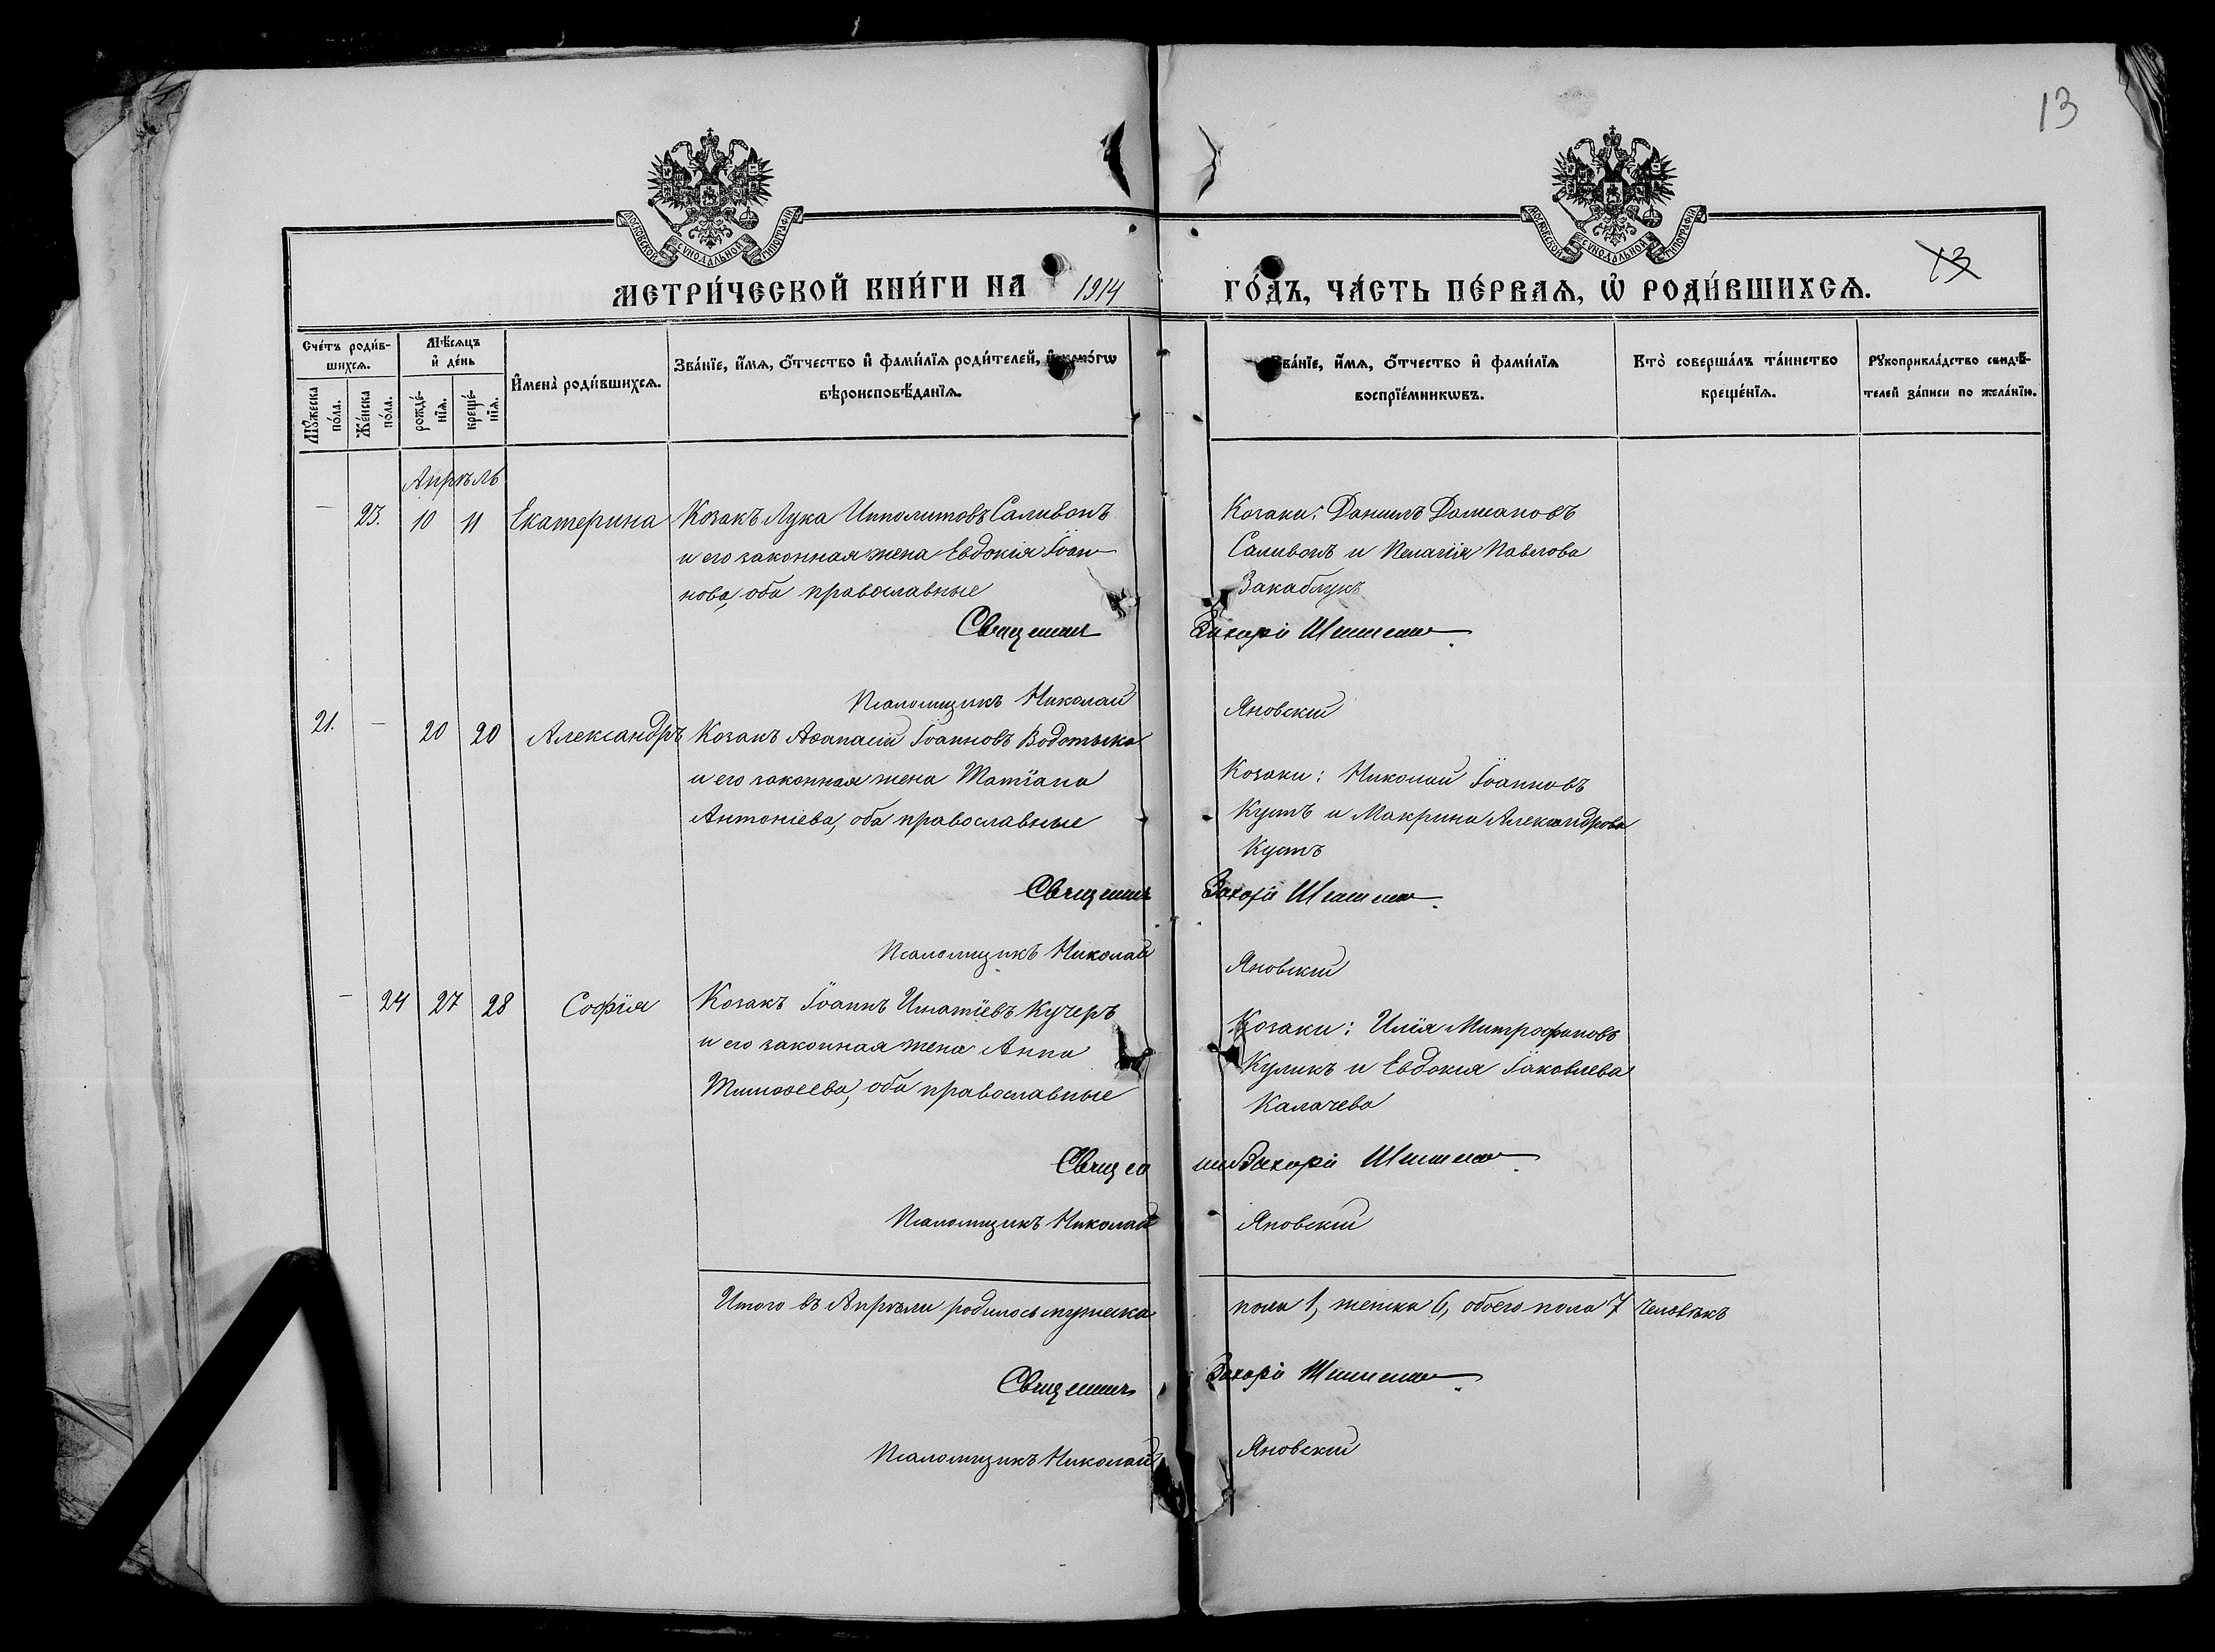 13
МОСКОВСКОЙ СѴНОДАЛЬНОЙ ТИПОГРАФІИ
МОСКОВСКОЙ СѴНОДАЛЬНОЙ ТИПОГРАФІИ
МЕТРИ́ЧЕСКОЙ КНИ́ГИ НА 1914 ГО́ДЪ, ЧА́СТЬ ПЕ́РВАѦ, Ѽ РОДИ́ВШИХСѦ. 13
Сче́тъ роди́в-
шихсѧ.
Мꙋ́жеска по́ла.
Же́нска по́ла.
Мѣ́сѧцъ и҆ де́нь
рожде́-нїѧ.
креще́-нїѧ.
И҆мена̀ роди́вшихсѧ.
Зва́нїе, и҆́мѧ, ѻ҆́тчество и҆ фами́лїѧ роди́телей, и҆ како́гѡ
вѣроисповѣ́данїѧ.
Зва́нїе, и҆́мѧ, ѻ҆́тчество и҆ фами́лїѧ
воспрїе́мникѡвъ.
Кто̀ соверша́лъ та́инство
креще́нїѧ.
Рꙋкоприкла́дство свидѣ́-
телей за́писи по жела́нїю.
Апрѣль
— 23. 10 11 Екатерина Козакъ Лука Ипполитовъ Саливонъ
и его законная жена Евдокія Іоан-
нова, оба православные
Козаки: Даніилъ Домiановъ
Саливонъ и Пелагія Павлова
Закаблукъ
Священникъ Захарій
Псаломщикъ Николай Яновскій
21. — 20 20 Александръ Козакъ Аѳанасій Іоанновъ Водотыка
и его законная жена Татіана
Антоніева, оба православные
Козаки: Николай Іоанновъ
Кустъ и Макрина Александрова
Кустъ
Священникъ Захарій
Псаломщикъ Николай Яновскій
— 24 27 28 Софія Козакъ Іоаннъ Игнатіевъ Кучеръ
и его законная жена Анна
Тимоѳеева, оба православные
Козаки: Илія Митрофановъ
Куликъ и Евдокія Іаковлева
Калачева
Священникъ Захарій
Псаломщикъ Николай Яновскій
Итого въ Апрѣли родилось мужеска пола 1, женска 6, обоего пола 7 человѣкъ
Священникъ Захарій
Псаломщикъ Николай Яновскій